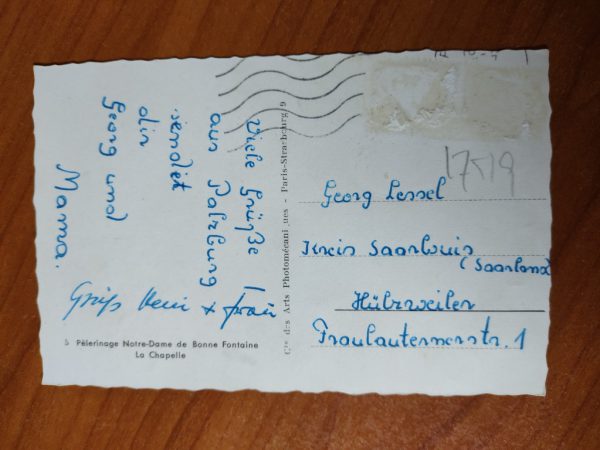 Viele Grüße
aus Palzburg
sendet
dir
Georg und
Mama.
Gruß Heini + Frau
5 Pèlerinage Notre-Dame de Bonne Fontaine
La Chapelle
Cie des Arts Photomécaniques - Paris-Strasbourg 9
17519
Georg Lessel
Kreis Saarlouis
(Saarland)
Hülzweiler
Fraulautenerstr. 1